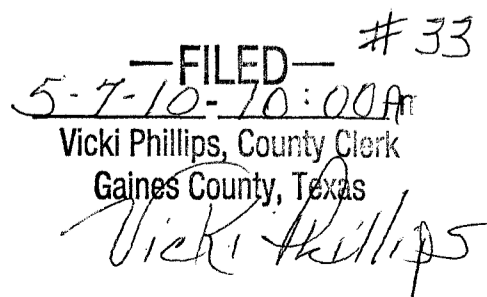 # 33
—FILED—
5-7-10-10:00Am
Vicki Phillips, County Clerk
Gaines County, Texas
Vicki Phillips